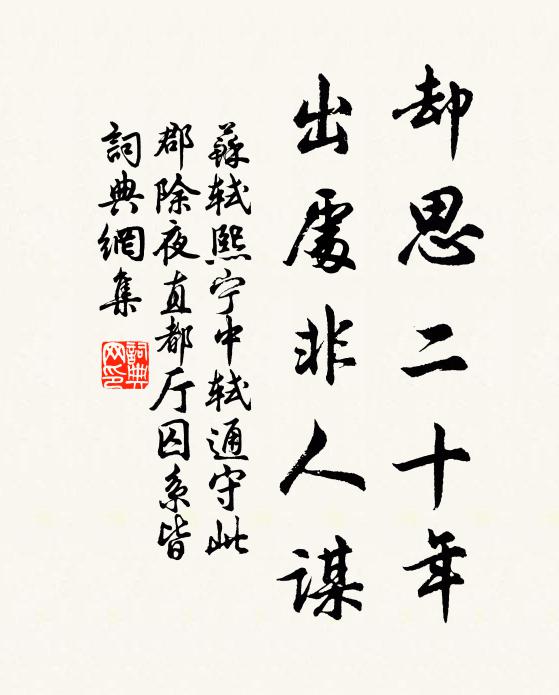 却思二十年
出處非人謀
蘇軾熙宁中軾通守此
郡除夜直都厅囚系皆
詞典網集
詞典
网印